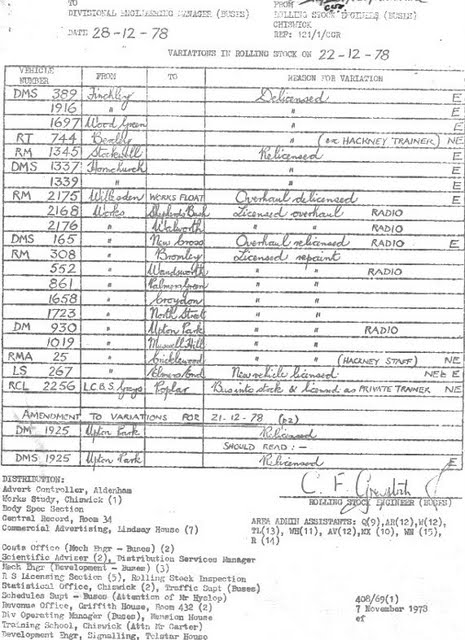 TO FROM
DIVISIONAL ENGINEERING MANAGER (BUSES) ROLLING STOCK ENGINEERS (BUSES)
CHISWICK
DATE 28-12-78 REF: 121/1/CGR
VARIATIONS IN ROLLING STOCK ON 22-12-78
VEHICLE NUMBER FROM TO REASON FOR VARIATION
DMS 389 Finchley Delicensed E
1916 " " E
1697 Wood Green " E
RT 744 Bexley " (ex HACKNEY TRAINER) NE
RM 1345 Stockwell Relicensed E
DMS 1337 Hornchurch " E
1339 " " E
RM 2175 Willesden WORKS FLOAT Overhaul delicensed E
2168 Works Shepherds Bush Licensed overhaul RADIO
2176 " Walworth " " RADIO
DMS 165 " New Cross Overhaul relicensed RADIO E
RM 308 " Bromley Licensed repaint
552 " Wandsworth " " RADIO
861 " Palmers Green " "
1658 " Croydon " "
1723 " North Street " "
DM 930 " Upton Park " " RADIO
1019 " Muswell Hill " "
RMA 25 " Cricklewood " " (HACKNEY STAFF) NE
LS 267 " Elmers End New vehicle licensed NE E
RCL 2256 L.C.B.S. Grays Poplar Bus into stock & licensed as PRIVATE TRAINER NE
AMENDMENT TO VARIATIONS FOR 21-12-78 (p2)
DM 1925 Upton Park Relicensed
SHOULD READ :-
DMS 1925 Upton Park Relicensed E
DISTRIBUTION:
Advert Controller, Aldenham
Works Study, Chiswick (1)
ROLLING STOCK ENGINEER (BUSES)
Body Spec Section
Central Record, Room 34
Commercial Advertising, Lindsay House (7)
AREA ADMIN ASSISTANTS: Q(9), AR(12), W(12),
TL(13), WH(11), AV(12), HX (10), WN (15),
R (14)
Costs Office (Mech Engr - Buses) (2)
Scientific Adviser (2), Distribution Services Manager
Mech Engr (Development - Buses) (3)
R S Licensing Section (5), Rolling Stock Inspection
Statistical Office, Chiswick (2), Traffic Supt (Buses)
Schedules Supt - Buses (Attention of Mr Hyslop)
Revenue Office, Griffith House, Room 432 (2)
Div Operating Manager (Buses), Mansion House
Training School, Chiswick (Attn Mr Garter)
Development Engr, Signalling, Telstar House
408/69(1)
7 November 1978
ef